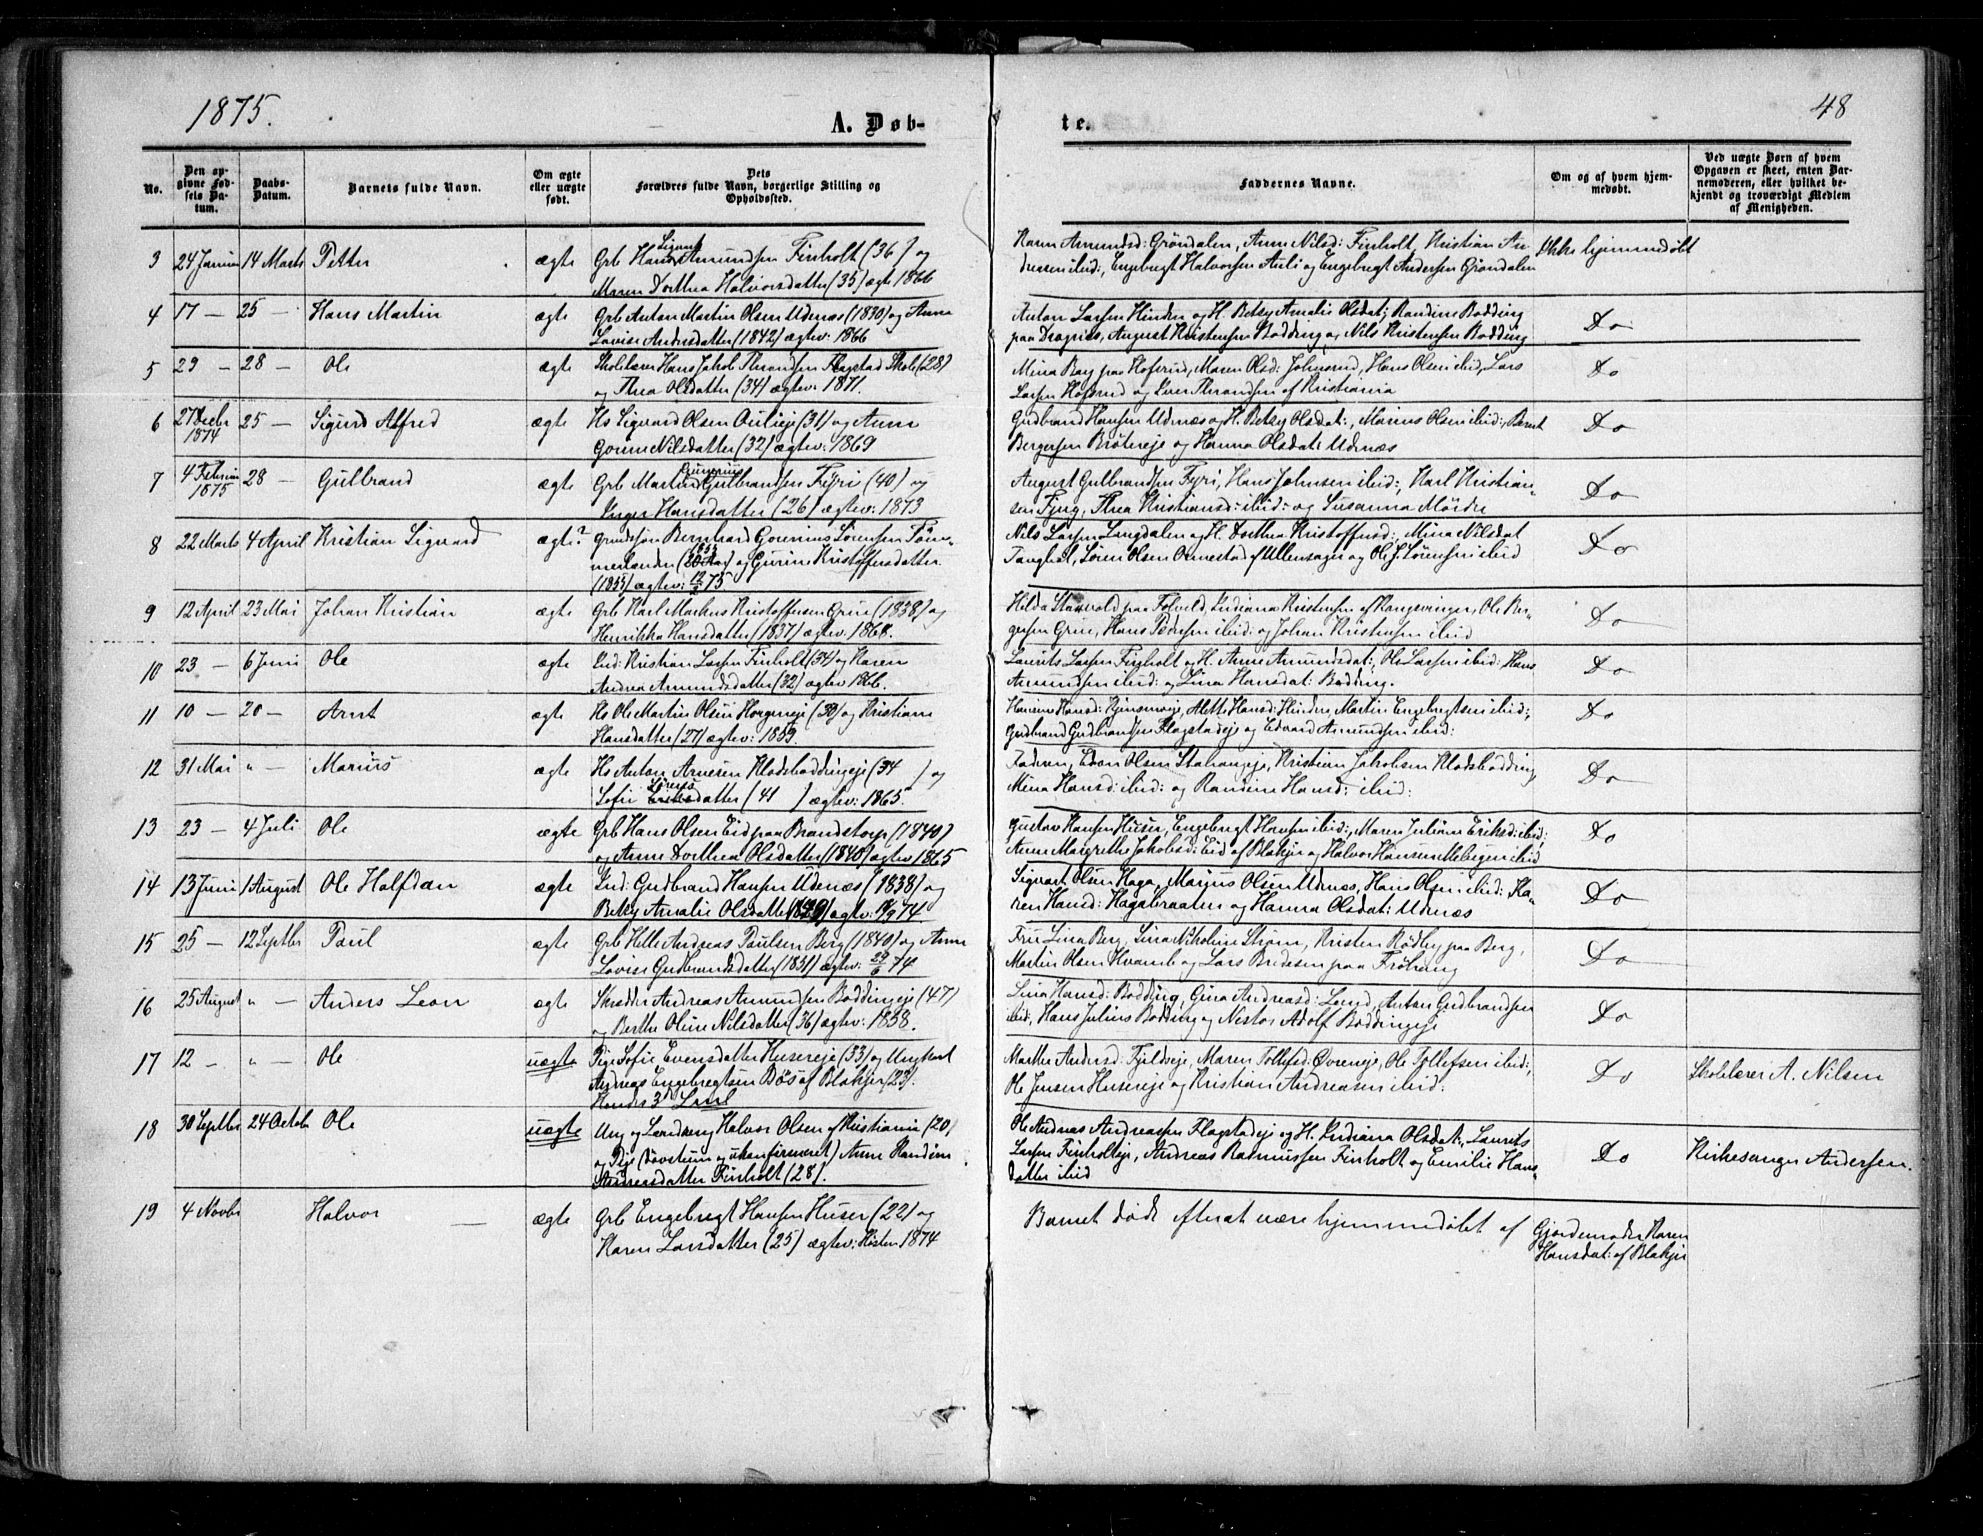 1875.
A. Døb-
te.
48
No.
Den op-
givne Fød-
sels Da-
tum.
Daabs-
Datum.
Barnets fulde Navn.
Om ægte
eller uægte
født.
Dets
Forældres fulde Navn, borgerlige Stilling og
Opholdssted.
Faddernes Navne.
Om og af hvem hjem-
medøbt.
Ved uægte Børn af hvem
Opgaven er skeet, enten Bar-
nemoderen, eller hvilket be-
kjendt og troværdigt Medlem
af Menigheden.
3 24 Januar 14 Marts Petter ægte Grb Hans Sigvart Amundsen Finholt (36) og
Maren Dorthea Halvorsdatter (35) ægt 1866
Karen Amundsd: Grøndalen, Anne Nilsd: Finholt, Kristian An-
dreasen ibid:, Engebregt Halvorsen Auli og Engebregt Andersen Grøndalen
Ikke hjemmedøbt
4 17 — 25 — Hans Martin ægte Grb Anton Martin Olsen Udenæs (1830) og Anne
Lovise Andersdatter (1842) ægtev: 1866
Anton Larsen Hinden og H. Betsy Amalie Olsdat; Randine Bødding
paa Dragnæs, August Kristensen Bødding og Nils Kristensen Bødding
Do
5 29 — 28 — Ole ægte Skolelærer Hans Jakob Thrandsen Flagstad Skole (28)
og Thea Olsdatter (34) ægtev: 1871.
Mina Bay paa Hofsrud, Maren Olsd: Johnsrud, Hans Olsen ibid, Lars
Larsen Hofsrud og Iver Thrandsen af Kristiania
Do
6 27 Decbr
1874
25 — Sigurd Alfred ægte Hs Sigvard Olsen Aulieje (31) og Anne
Gorine Nilsdatter (32) ægtev: 1869
Gudbrand Hansen Udenæs og H. Betsy Olsdat:, Marius Olsen ibid:, Bernt
Bergersen Brøtereje og Hanna Olsdat: Udenæs
Do
7 4 Februar
1875
28 — Gulbrand ægte Grb Martin Gunerius Gulbrandsen Fyri (40) og
Inger Hansdatter (26) ægtev: 1873
August Gulbrandsen Fyri, Hans Johnsen ibid:, Karl Kristian-
sen Fjug, Thea Kristiansd: ibid: og Susanna Mørdre
Do
8 22 Marts 4 April Kristian Sigvard ægte? Grundsson Bernhard Gorinius Sørensen Tøm-
merlanden (20 Aar) og Gurine Kristoffersdatter
(1855) ægtev: 12/2 75
Nils Larsen Langdalen og H. Dorthea Kristoffersd:, Mina Nilsdat
Tanghol, Søren Olsen Ormestad af Ullensager og Ole J. Sørensen ibid
Do
9 12 April 23 Mai Johan Kristian ægte Grb Karl Markus Kristoffersen Grini (1838) og
Henrikka Hansdatter (1837) ægtev: 1868.
Hilda Stavold paa Folveld, Indiana Kristensen af Kongsvinger, Ole Ber-
gersen Grini, Hans Pedersen ibid: og Johan Kristiansen ibid
Do
10 23 — 6 Juni Ole ægte Ind: Kristian Larsen Finholt (34) og Karen
Andrea Amundsdatter (32) ægtev 1866.
Laurits Larsen Finholt og H. Anne Amundsdat:, Ole Larsen ibid: Hans
Amundsen ibid: og Lina Hansdat: Bødding.
Do
11 10 — 20 — Arnt ægte Hs Ole Martin Olsen Horgeneje (39) og Kristiane
Hansdatter (27) ægtev: 1869.
Do
12 31 Mai " — Marius ægte Hs Anton Arnesen Klodsbøddingeje (34 ) og
Sofie Larsdatter (41 ) ægtev: 1865.
Faderen, Edon Olsen Stahangeje, Kristian Jakobsen Klodsbødding
Mina Hansd: ibid: og Randine Hansd: ibid:
Do
13 23 — 4 Juli Ole ægte Grb Hans Olsen Eid paa Brandstorp (1840)
og Anne Dorthea Olsdatter (1840) ægtev 1865
Gustav Hansen Huser, Engebregt Hansen ibid:, Maren Juliane Eriksd: ibid;
Anne Margrethe Jakobsd: Eid af Blakjer og Halvor Hansen Melnigen ibid
Do
14 13 Juni 1 August Ole Halfdan ægte Ind: Gudbrand Hansen Udenæs (1838) og
Betsy Amalie Olsdatter (1849) ægtev: 11/9 74
Sigvart Olsen Haga, Marius Olsen Udenæs, Hans Olsen ibid: Ka-
ren Hansd: Hagabraaten og Hanna Olsdat: Udenæs
Do
15 25 — 12 Septbr Paul ægte Grb Helle Andreas Paulsen Berg (1840) og Anne
Lovise Gudbrandsdatter (1851) ægtev: 29/6 74
Fru Lina Berg, Lina Nikoline Strøm, Kristen Rødby paa Berg,
Martin Olsen Hvamb og Lars Bredesen paa Frøhaug
Do
16 25 August " — Anders Leon ægte Skrædder Andreas Amundsen Bøddingeje (47)
og Berthe Oline Nilsdatter (36) ægtev: 1858.
Lina Hansd: Bødding, Gina Andreasd: Lund, Anton Gudbrandsen
ibid, Hans Julius Bødding og Nestor Adolf Bøddingeje
Do
17 12 — " — Ole uægte Pige Sofie Evensdatter Husereje (33) og Ungkarl
Andreas Engebregtsen Bøs af Blakjer (23).
Hendes 3die Leiel
Marthe Andersd: Fjeldseje, Maren Tollefsd: Ovreneje, Ole Tollefsen ibid:,
Ole Jensen Husereje og Kristian Andreasen ibid:
Do
Skolelærer A. Nilsen
18 30 Septbr 24 Octobr Ole uægte Ung og Landkrug Halvor Olsen af Kristiania (20)
og Pige (døvstum og ukonfirmeret) Anne Randine
Andersdatter Finholt (28).
Ole Andreas Andreassen Flagstadeje og H. Indiana Olsdat., Laurits
Larsen Finholteje, Andreas Rasmussen Finholt og Emilie Hans-
datter ibid
Do
Kirkesanger Andersen.
19 4 Novbr Halvor ægte Grb Engebregt Hansen Huser (22) og
Karen Larsdatter (25) ægtev: Høsten 1874
Barnet døde efter at være hjemmedøbt af
Gjordemoder Karen
Hansdat: af Blakjer